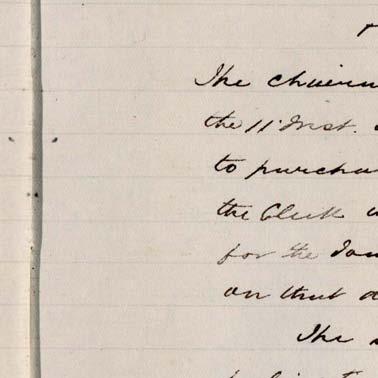 The chairm
the 11 Inst.
to purcha
the Clerk
for the
on that
The